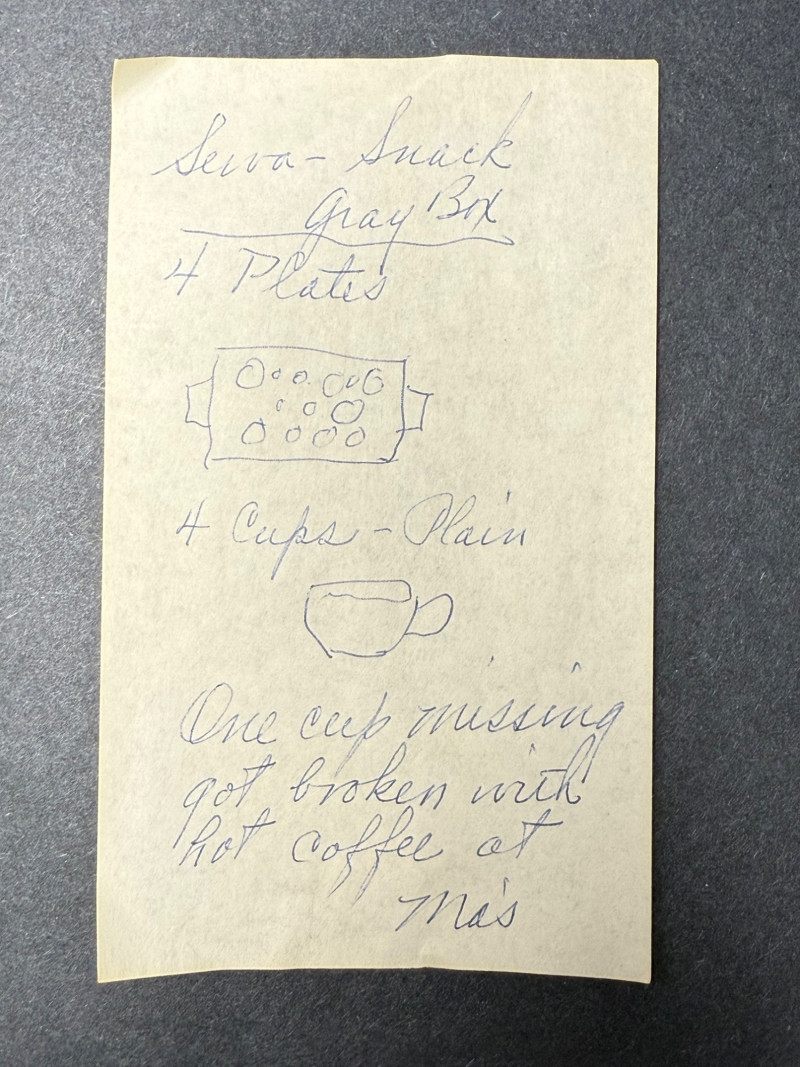 Serva - Snack
Gray Box
4 Plates
4 Cups - Plain
One cup missing
got broken with
hot coffee at
Ma's